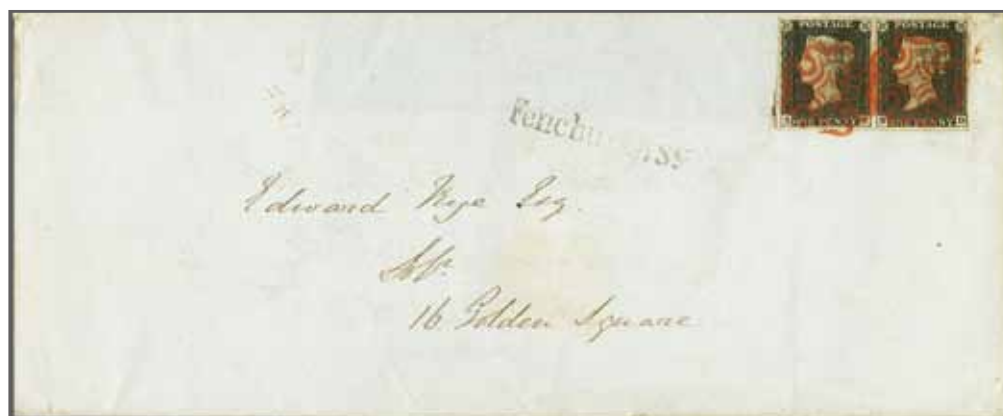 POSTAGE POSTAGE
PENNY PENNY
Fenchu
Edward Nye Esq.
16 Golden Square